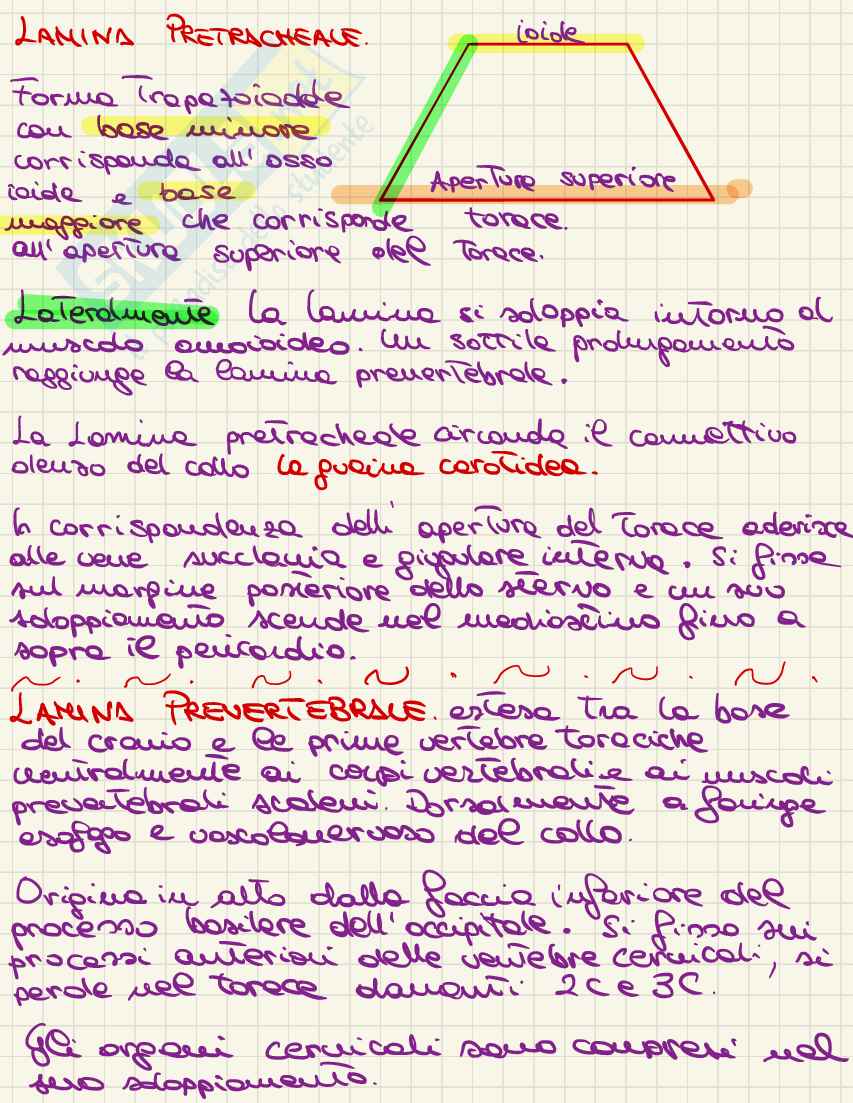 LAMINA PRETRACHEALE.
ioide
Forma Trapezoidale
con base minore
corrisponda all'osso
ioide e base
Apertura superiore
maggiore che corrisponde torace.
all'apertura superiore del Torace.
Lateralmente la lamina si sdoppia intorno al
muscolo omoioideo. Un sottile prolungamento
raggiunge la lamina prevertebrale.
La Lamina pretracheale circonda il connettivo
denso del collo la guaina carotidea.
In corrispondenza dell'apertura del Torace aderisce
alle vene succlavia e giugulare interna. Si fissa
sul margine posteriore dello sterno e un suo
sdoppiamento scende nel mediastino fino a
sopra il pericardio.
LAMINA PREVERTEBRALE. estesa tra la base
del cranio e le prime vertebre toraciche
ventralmente ai corpi vertebrali e ai muscoli
prevertebrali scaleni. Dorsalmente a faringe
esofago e vascolonervoso del collo.
Origina in alto dalla faccia inferiore del
processo basilare dell'occipitale. Si fissa sui
processi anteriori delle vertebre cervicali, si
perde nel torace davanti 2C e 3C.
Gli organi cervicali sono compresi nel
suo sdoppiamento.